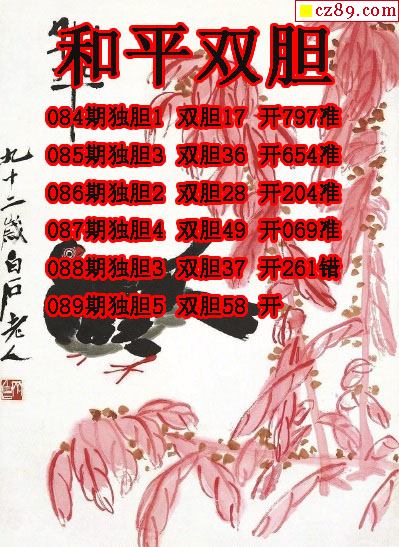 cz89.com
和平双胆
084期独胆1 双胆17 开797准
085期独胆3 双胆36 开654准
086期独胆2 双胆28 开204准
087期独胆4 双胆49 开069准
088期独胆3 双胆37 开261错
089期独胆5 双胆58 开
九十二岁白石老人